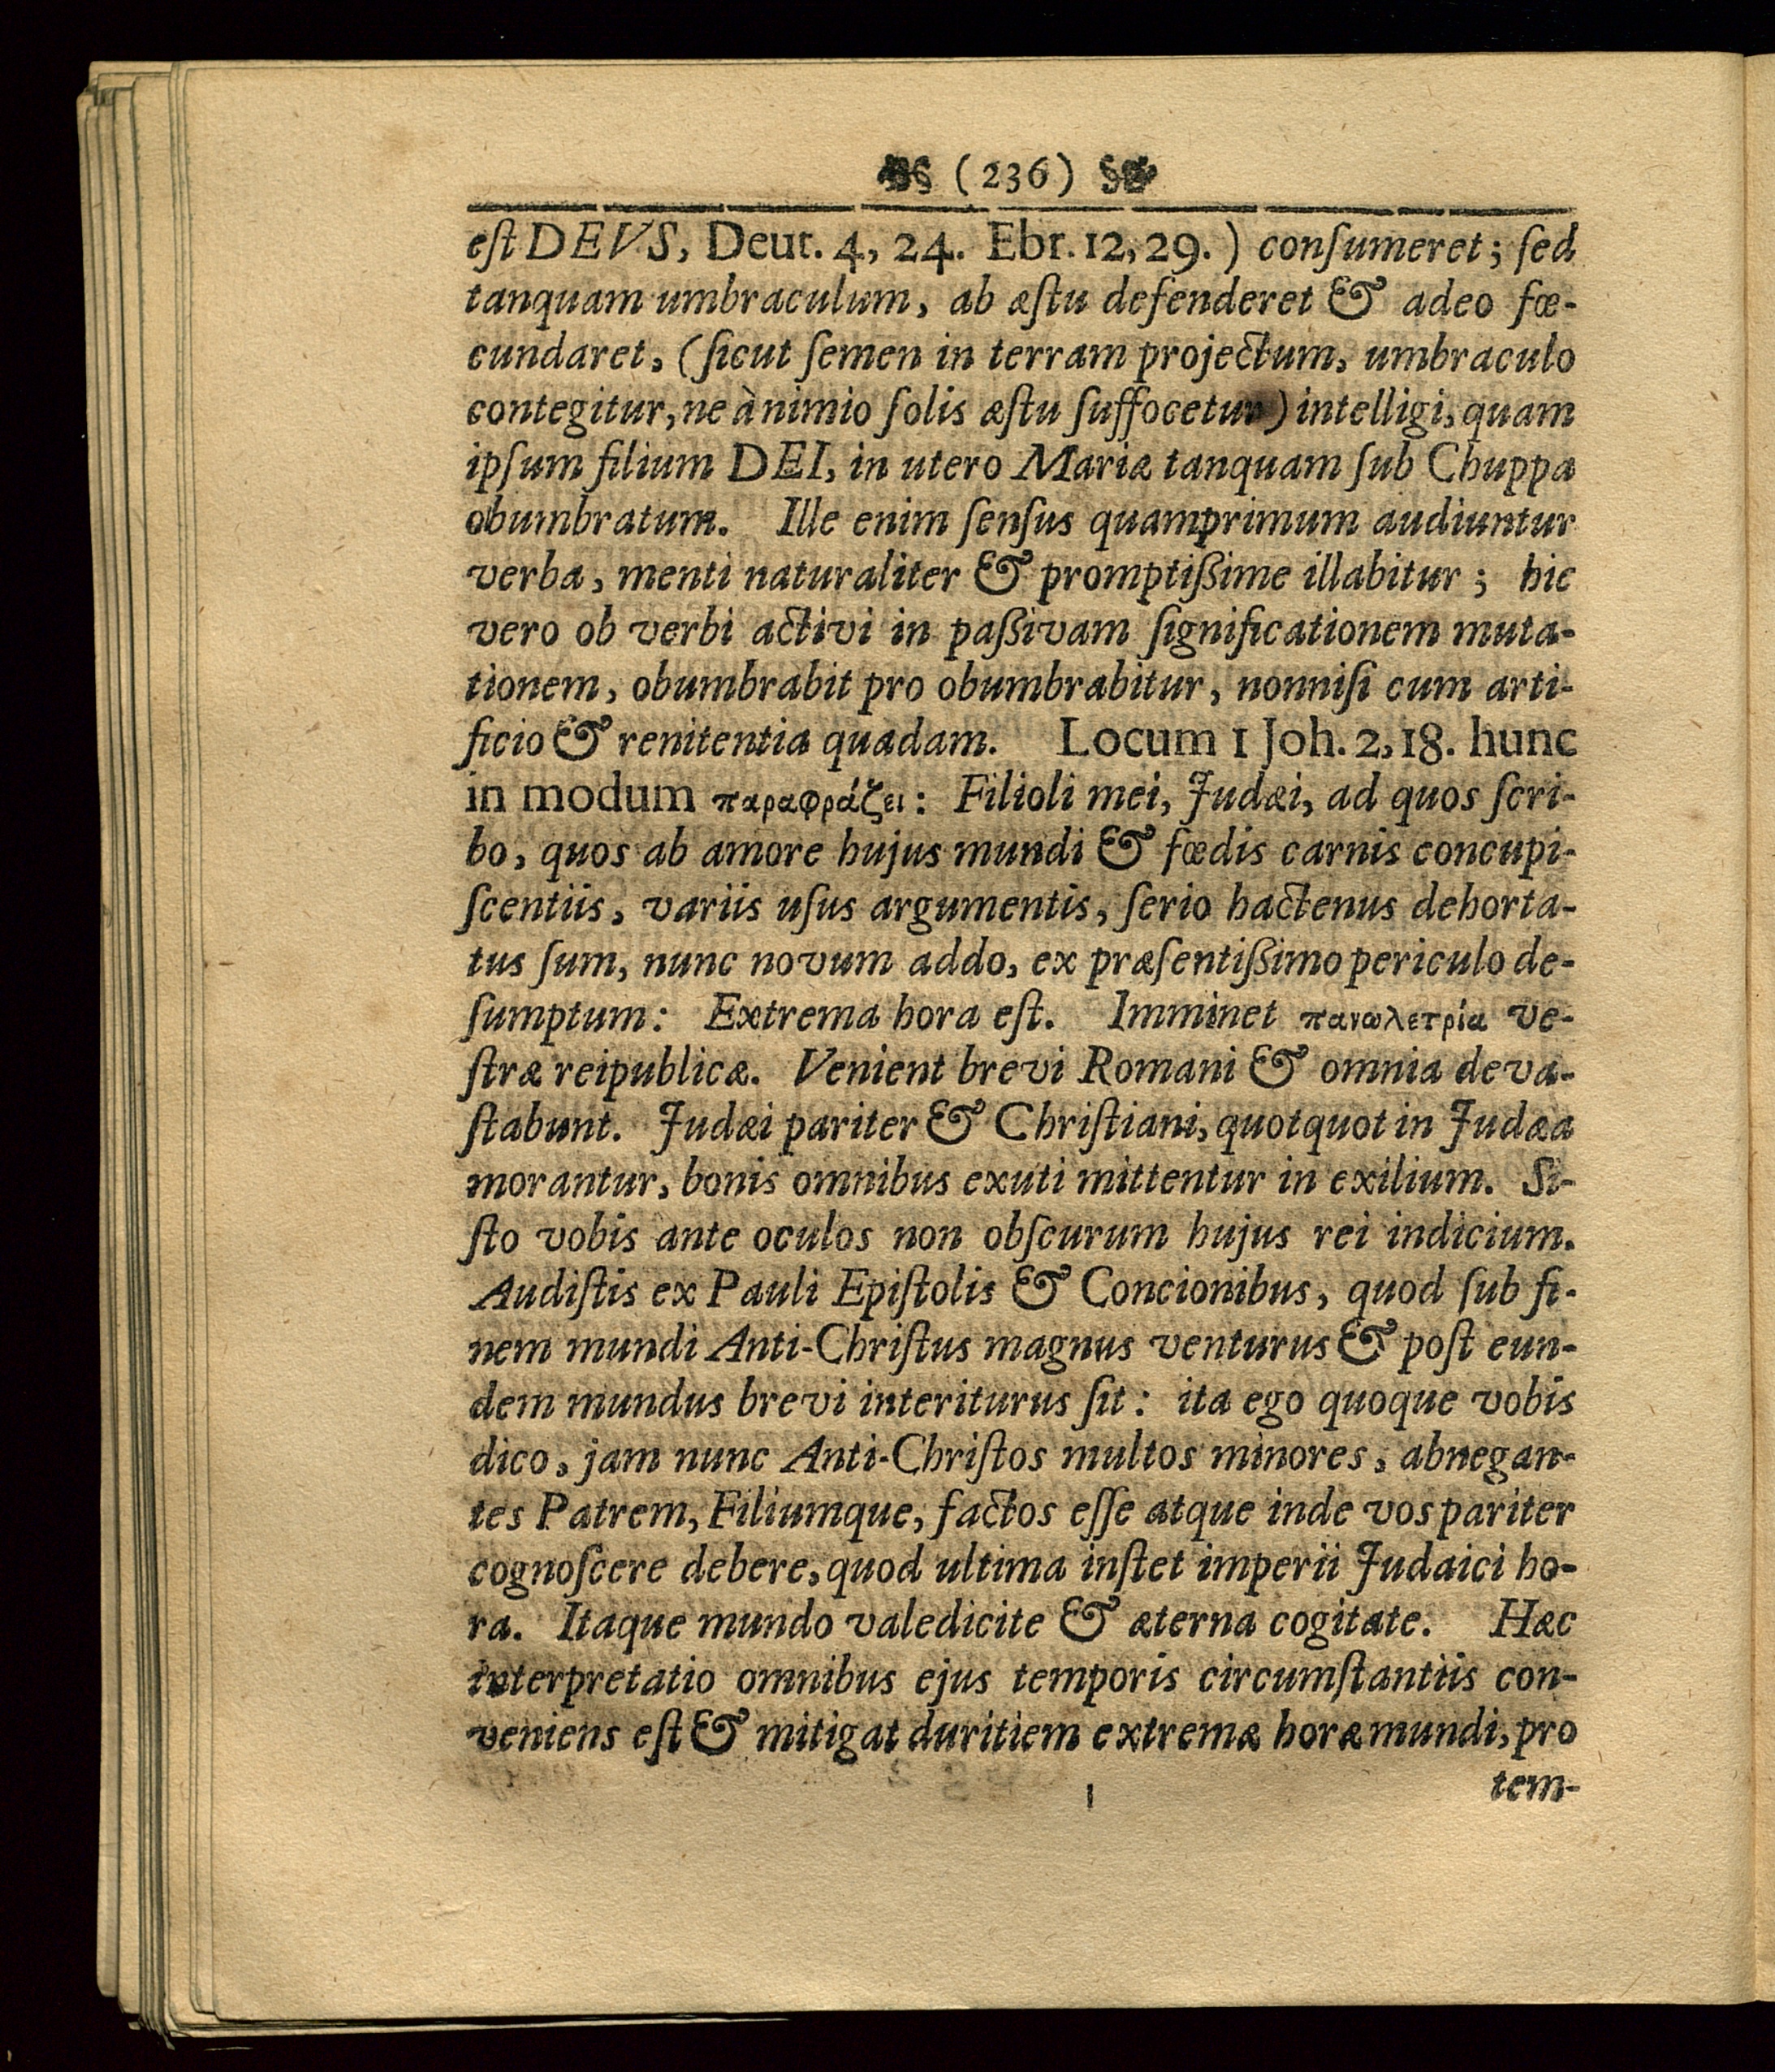 (236)
eſt DEVS, Deut. 4, 24. Ebr. 12, 29. ) conſumeret; ſed
tanquam umbraculum, ab æſtu defenderet & adeo fœ-
cundaret, (ſicut ſemen in terram projectum, umbraculo
contegitur, ne à nimio ſolis æſtu ſuffocetur) intelligi, quam
ipſum filium DEI, in utero Mariæ tanquam ſub Chuppa
obumbratum. Ille enim ſenſus quamprimum audiuntur
verba, menti naturaliter & promptißime illabitur; hic
vero ob verbi activi in paßivam ſignificationem muta-
tionem, obumbrabit pro obumbrabitur, nonniſi cum arti-
ficio & renitentia quadam. Locum 1 Joh. 2, 18. hunc
in modum παραφράζει: Filioli mei, Judæi, ad quos ſcri-
bo, quos ab amore hujus mundi & fœdis carnis concupi-
ſcentiis, variis uſus argumentis, ſerio hactenus dehorta-
tus ſum, nunc novum addo, ex præſentißimo periculo de-
ſumptum: Extrema hora eſt. Imminet πανωλετρία ve-
ſtræ reipublicæ. Venient brevi Romani & omnia deva-
ſtabunt. Judæi pariter & Chriſtiani, quotquot in Judæa
morantur, bonis omnibus exuti mittentur in exilium. Si-
ſto vobis ante oculos non obſcurum hujus rei indicium.
Audiſtis ex Pauli Epiſtolis & Concionibus, quod ſub fi-
nem mundi Anti-Chriſtus magnus venturus & poſt eun-
dem mundus brevi interiturus ſit: ita ego quoque vobis
dico, jam nunc Anti-Chriſtos multos minores, abnegan-
tes Patrem, Filiumque, factos eſſe atque inde vos pariter
cognoſcere debere, quod ultima inſtet imperii Judaici ho-
ra. Itaque mundo valedicite & æterna cogitate. Hæc
interpretatio omnibus ejus temporis circumſtantiis con-
veniens eſt & mitigat duritiem extremæ horæ mundi, pro
tem-